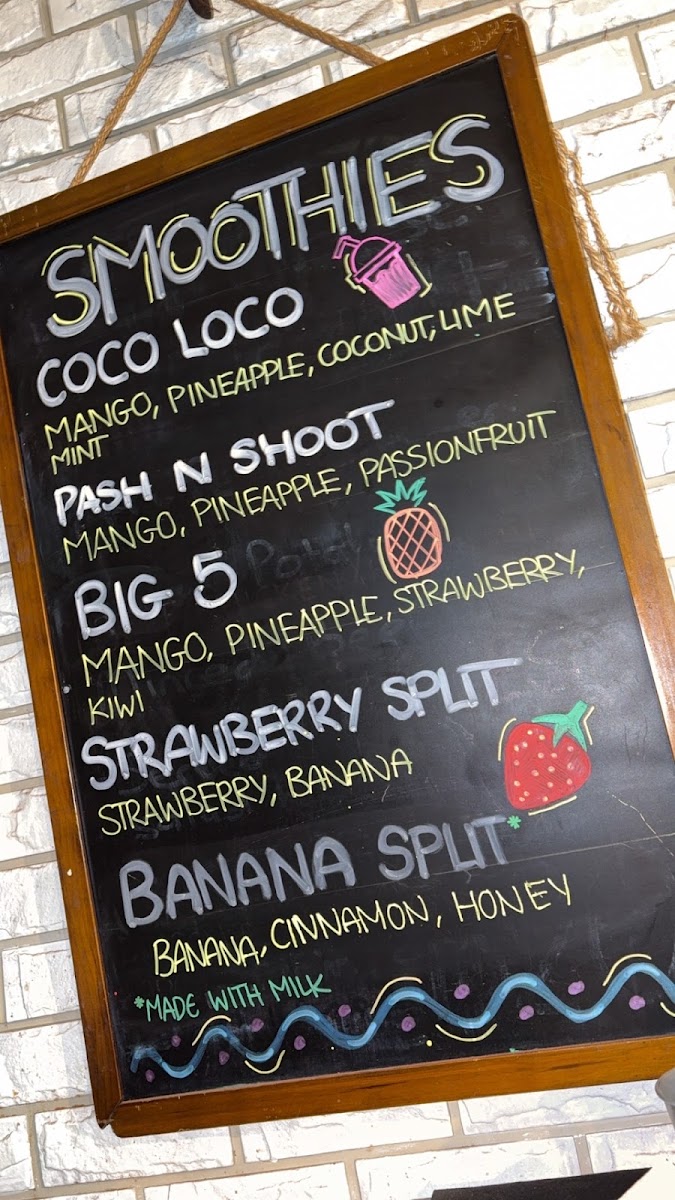 SMOOTHIES
COCO LOCO
MANGO, PINEAPPLE, COCONUT, LIME
MINT
PASH N SHOOT
MANGO, PINEAPPLE, PASSIONFRUIT
BIG 5
MANGO, PINEAPPLE, STRAWBERRY,
KIWI
STRAWBERRY SPLIT
STRAWBERRY, BANANA
BANANA SPLIT*
BANANA, CINNAMON, HONEY
*MADE WITH MILK